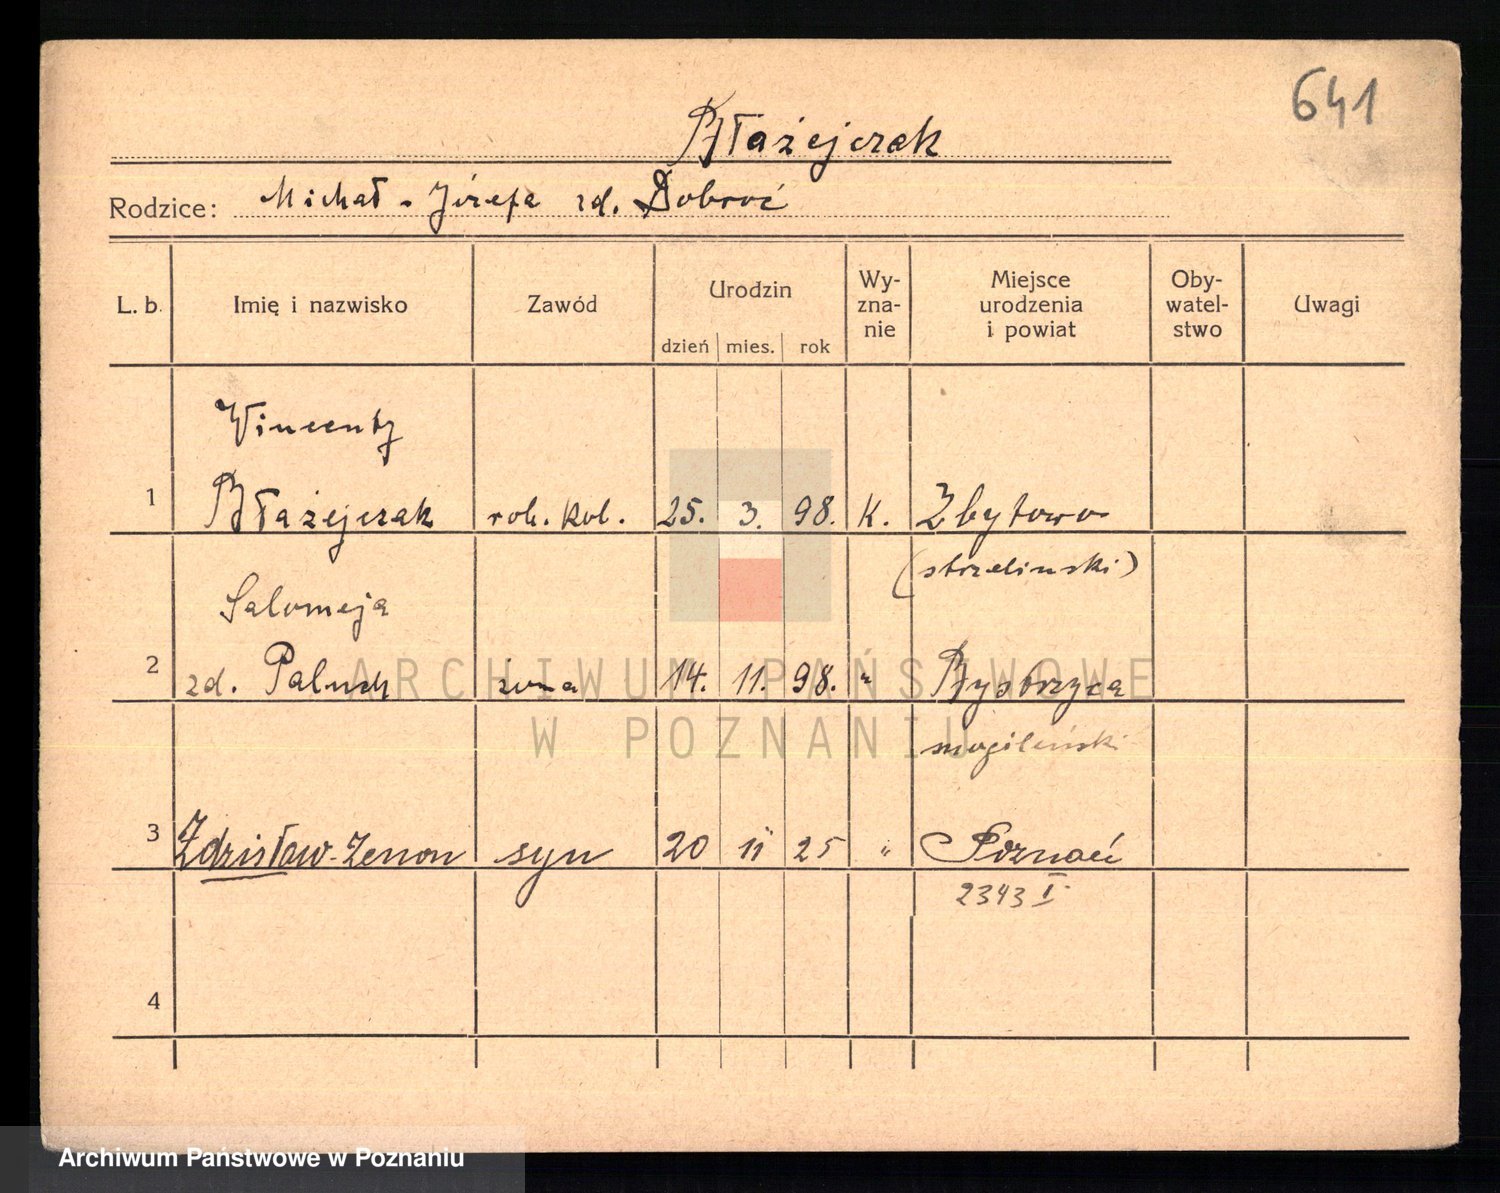 641
Błażejczak
Rodzice: Michał - Józefa zd. Dobroć
L. b. Imię i nazwisko Zawód Urodzin Wy-zna-nie Miejsce urodzenia i powiat Oby-watel-stwo Uwagi
dzień mies. rok
Wincenty
1 Błażejczak rob. kol. 25. 3. 98. K. Zbytowo
(strzeliński)
Salomeja
2 zd. Paluch żona 14. 11. 98. " Bystrzyca
mogileński
3 Zdzisław-Zenon syn 20 11 25 " Poznań
2343 I
4
ARCHIWUM PAŃSTWOWE
W POZNANIU
Archiwum Państwowe w Poznaniu